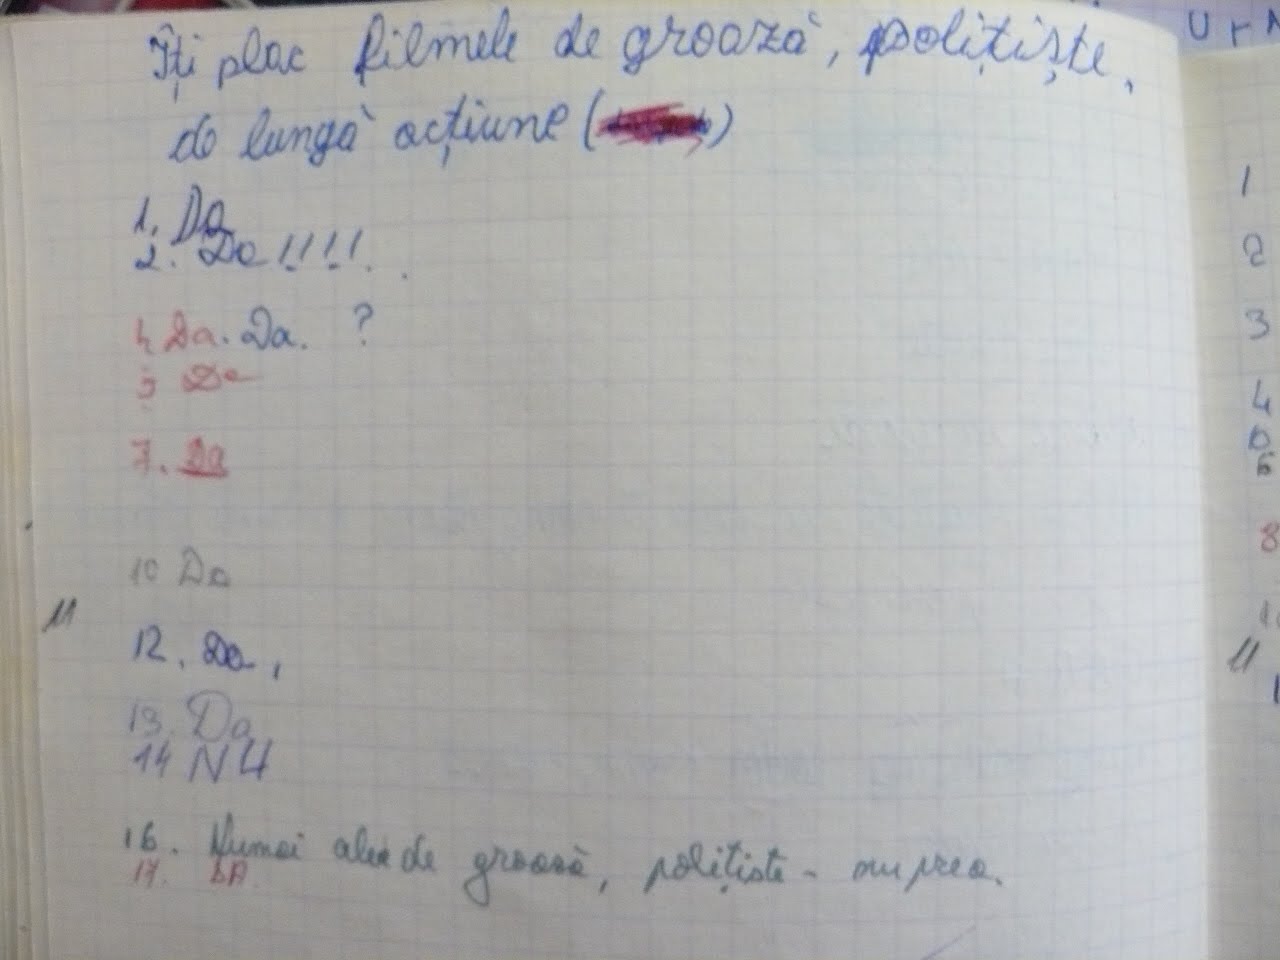 Îți plac filmele de groază, polițiște,
de lungă acțiune ( )
1. Da
2. Da !!!!.
4 Da. Da. ?
5 Da
7. Da
10 Da
11
12. Da,
13. Da
14 NU
16. Numai alea de groază, polițiste - nu prea.
17. DA.
U r
1
2
3
4
6
8
11